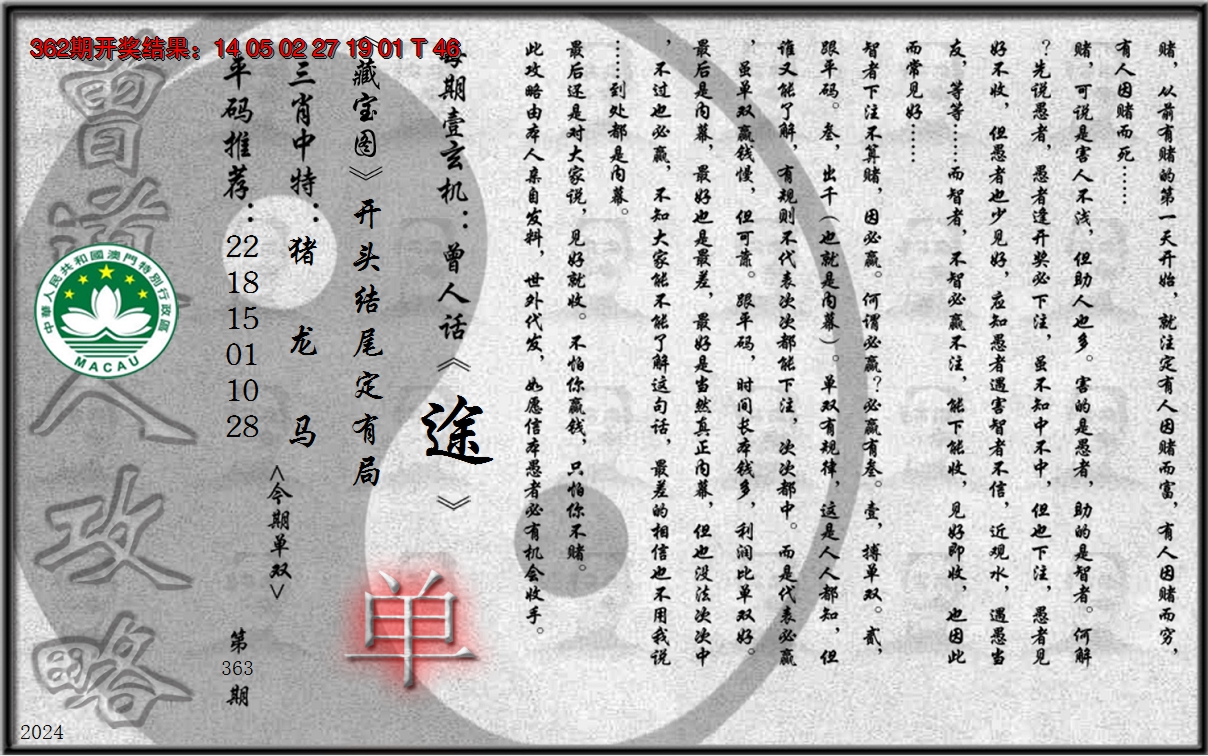 362期开奖结果：14 05 02 27 19 01 T 46
赌，从前有赌的第一天开始，就注定有人因赌而富，有人因赌而穷，
有人因赌而死……
赌，可说是害人不浅，但助人也多。害的是愚者，助的是智者。何解
？先说愚者，愚者逢开奖必下注，虽不知中不中，但也下注，愚者见
好不收，但愚者也少见好，应知愚者遇害智者不信，近观水，遇愚当
友，等等……而智者，不智必赢不注，能下能收，见好即收，也因此
而常见好……
智者下注不算赌，因必赢。何谓必赢？必赢有叁。壹，搏单双。贰，
跟平码。叁，出千（也就是内幕）。单双有规律，这是人人都知，但
谁又能了解，有规则不代表次次都能下注，次次都中。而是代表必赢
，虽单双赢钱慢，但可靠。跟平码，时间长本钱多，利润比单双好。
最后是内幕，最好也是最差，最好是当然真正内幕，但也没法次次中
，不过也必赢，不知大家能不能了解这句话，最差的相信也不用我说
……到处都是内幕。
最后还是对大家说，见好就收。不怕你赢钱，只怕你不赌。
此攻略由本人亲自发料，世外代发，如愿信本愚者必有机会收手。
每期壹玄机：曾人话《途》
《藏宝图》开头结尾定有局
单
三肖中特：猪 龙 马
<今期单双>
平码推荐：22 18 15 01 10 28
第363期
曾道人攻略
中華人民共和國澳門特別行政區
MACAU
2024